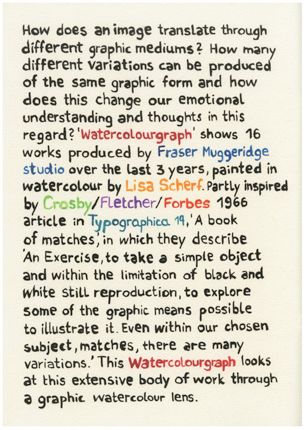 How does an image translate through
different graphic mediums? How many
different variations can be produced
of the same graphic form and how
does this change our emotional
understanding and thoughts in this
regard? 'Watercolourgraph' shows 16
works produced by Fraser Muggeridge
studio over the last 3 years, painted in
watercolour by Lisa Scherf. Partly inspired
by Crosby/Fletcher/Forbes 1966
article in Typographica 19, 'A book
of matches', in which they describe
'An Exercise, to take a simple object
and within the limitation of black and
white still reproduction, to explore
some of the graphic means possible
to illustrate it. Even within our chosen
subject, matches, there are many
variations.' This Watercolourgraph looks
at this extensive body of work through
a graphic watercolour lens.